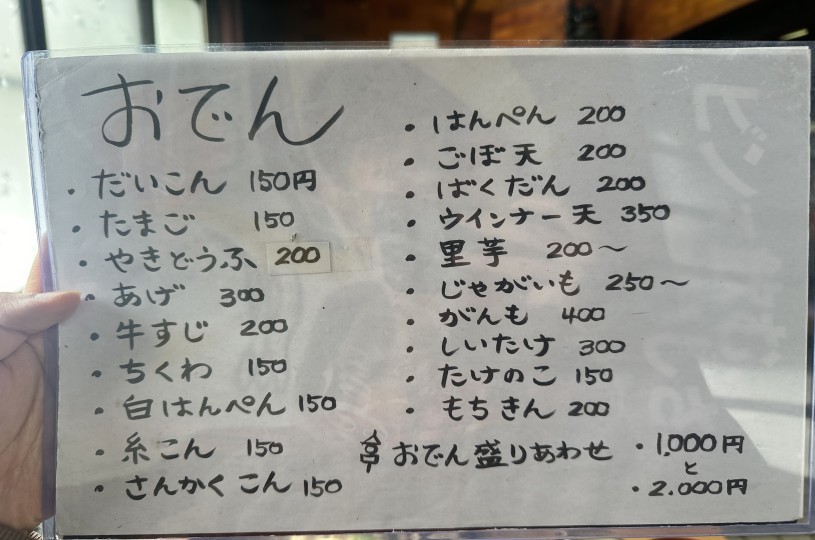 おでん
・だいこん 150円
・たまご 150
・やきどうふ 200
・あげ 300
・牛すじ 200
・ちくわ 150
・白はんぺん 150
・糸こん 150
・さんかくこん 150
・はんぺん 200
・ごぼ天 200
・ばくだん 200
・ウインナー天 350
・里芋 200〜
・じゃがいも 250〜
・がんも 400
・しいたけ 300
・たけのこ 150
・もちきん 200
おでん盛りあわせ ・1,000円
と
・2.000円